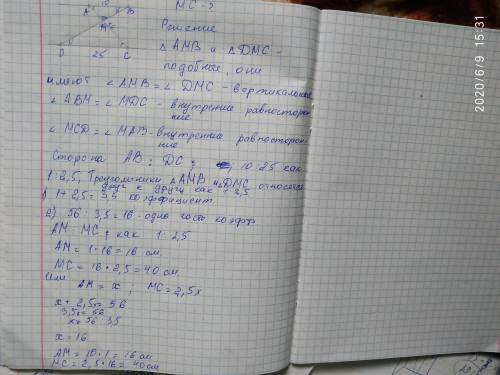 10
МС-?
A
B
M
Решение
D
25
C
△ AMB и △ DMC -
подобные, они
имеют ∠ AMB = ∠ DMC - вертикальные
∠ ABM = ∠ MDC - внутренние равносторонние
∠ MCD = ∠ MAB - внутренние равносторонние
Сторона AB : DC, 10 : 25 как
1 : 2,5, Треугольники △AMB и △DMC относятся
друг к другу как 1 : 2,5
1) 1 + 2,5 = 3,5 коэффициент
2) 56 : 3,5 = 16 - одна часть коэфф
AM : MC, как 1 : 2,5
AM = 1 • 16 = 16 см.
MC = 16 • 2,5 = 40 см
Или AM = x, MC = 2,5x
x + 2,5x = 56
3,5x = 56
x = 56 : 3,5
x = 16
AM = 16 • 1 = 16 см
MC = 2,5 • 16 = 40 см
2020/6/9 15:31